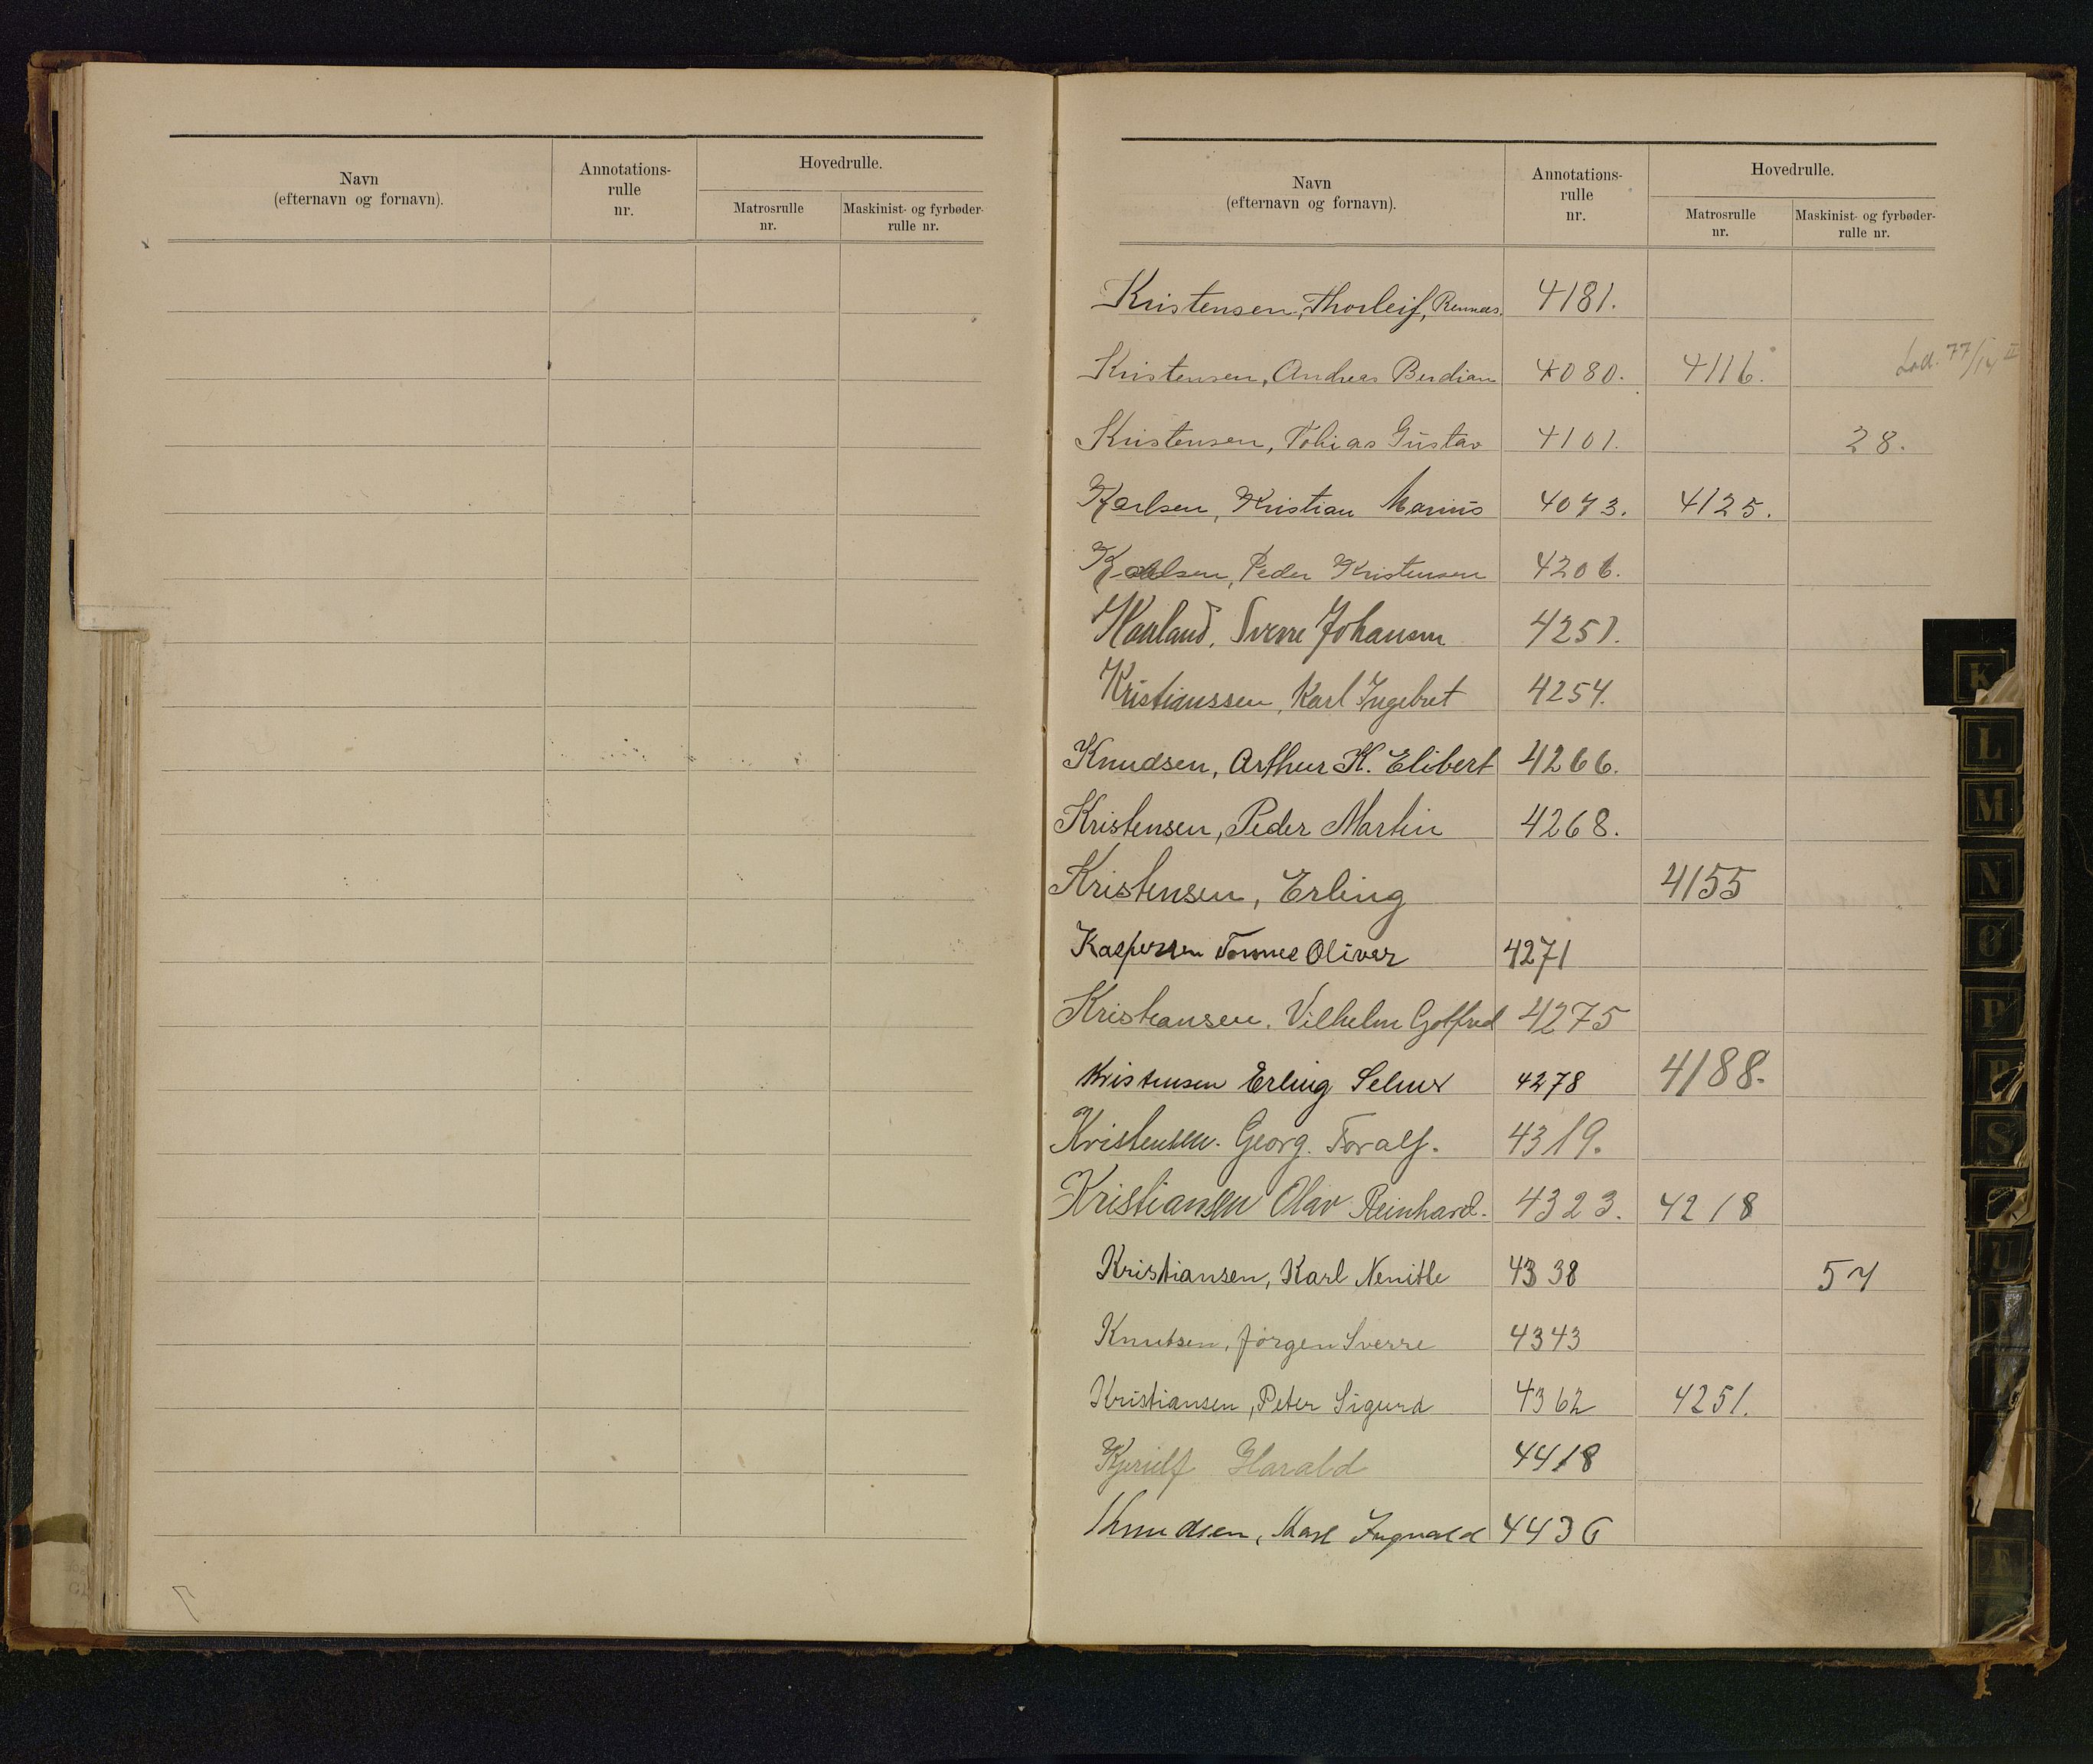 Navn
(efternavn og fornavn).
Annotations-
rulle
nr.
Hovedrulle.
Matrosrulle
nr.
Maskinist- og fyrbøder-
rulle nr.
Navn
(efternavn og fornavn).
Annotations-
rulle
nr.
Hovedrulle.
Matrosrulle
nr.
Maskinist- og fyrbøder-
rulle nr.
Kristensen, Thorleif, 4181.
Kristensen, Andreas Berdian 4080. 4116. 77/14 II
Kristensen, Tobias Gustav 4101. 28.
Karlsen, Kristian Marius 4073. 4125.
Karlsen, Peder Kristensen 4206.
Kauland, Sverre Johansen 4251.
Kristianssen, Karl Ingebret 4254.
Knudsen, Arthur K. Elibert 4266.
Kristensen, Peder Martin 4268.
Kristensen, Erling 4155
Kaspersen Tønnes Oliver 4271
Kristiansen, Vilhelm Gotfred 4275
Kristensen Erling Selmer 4278 4188.
Kristensen. Georg. Toralf. 4319.
Kristiansen Olav Reinhard. 4323. 4218
Kristiansen, Karl 4338 57
Knutsen, Jørgen Sverre 4343
Kristiansen, Peter Sigurd 4362 4251.
Kjerulf Harald 4418
Knudsen, Karl Ingvald 4436
K
L
M
N
O
P
R
S
U